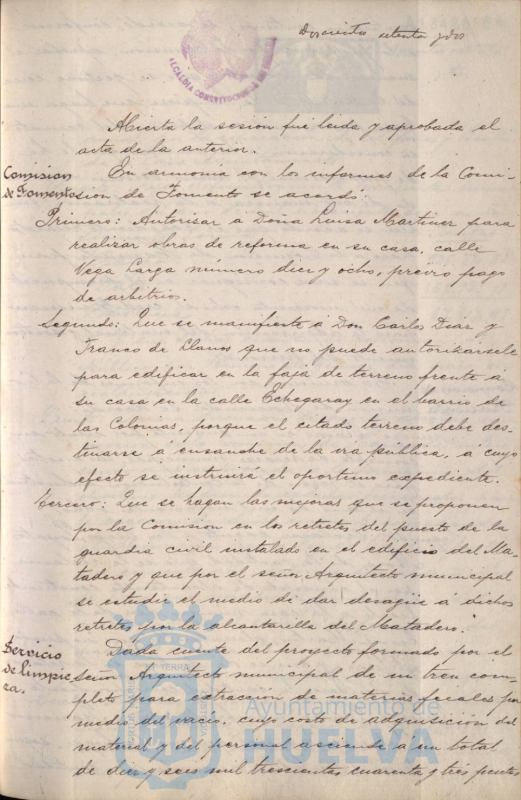 Doscientos setenta y dos
ALCALDIA CONSTITUCIONAL DE HUELVA
Abierta la sesion fué leida y aprobada el
acta de la anterior.
Comision
de Fomento
En armonia con los informes de la Comi-
sion de Fomento se acordó:
Primero: Autorisar á Doña Luisa Martinez para
realizar obras de reforma en su casa, calle
Vega Larga número diez y ocho, prévio pago
de arbitrios.
Segundo: Que se manifieste á Don Carlos Diaz y
Franco de Llanos que no puede autorizársele
para edificar en la faja de terreno frente á
su casa en la calle Echegaray en el barrio de
las Colonias, porque el citado terreno debe des-
tinarse á ensanche de la via pública, á cuyo
efecto se instruirá el oportuno expediente.
Tercero: Que se hagan las mejoras que se proponen
por la Comision en los retretes del puesto de la
guardia civil instalado en el edificio del Ma-
tadero y que por el señor Arquitecto municipal
se estudie el medio de dar desagüe á dichos
retretes por la alcantarilla del Matadero.
Servicio
de limpie
za.
Dada cuenta del proyecto formado por el
Señor Arquitecto municipal de un tren com-
pleto para extraccion de materias fecales por
medio del vacio, cuyo costo de adquisicion del
material y del personal asciende á un total
de diez y seis mil trescientas cuarenta y tres pesetas
Ayuntamiento de
HUELVA